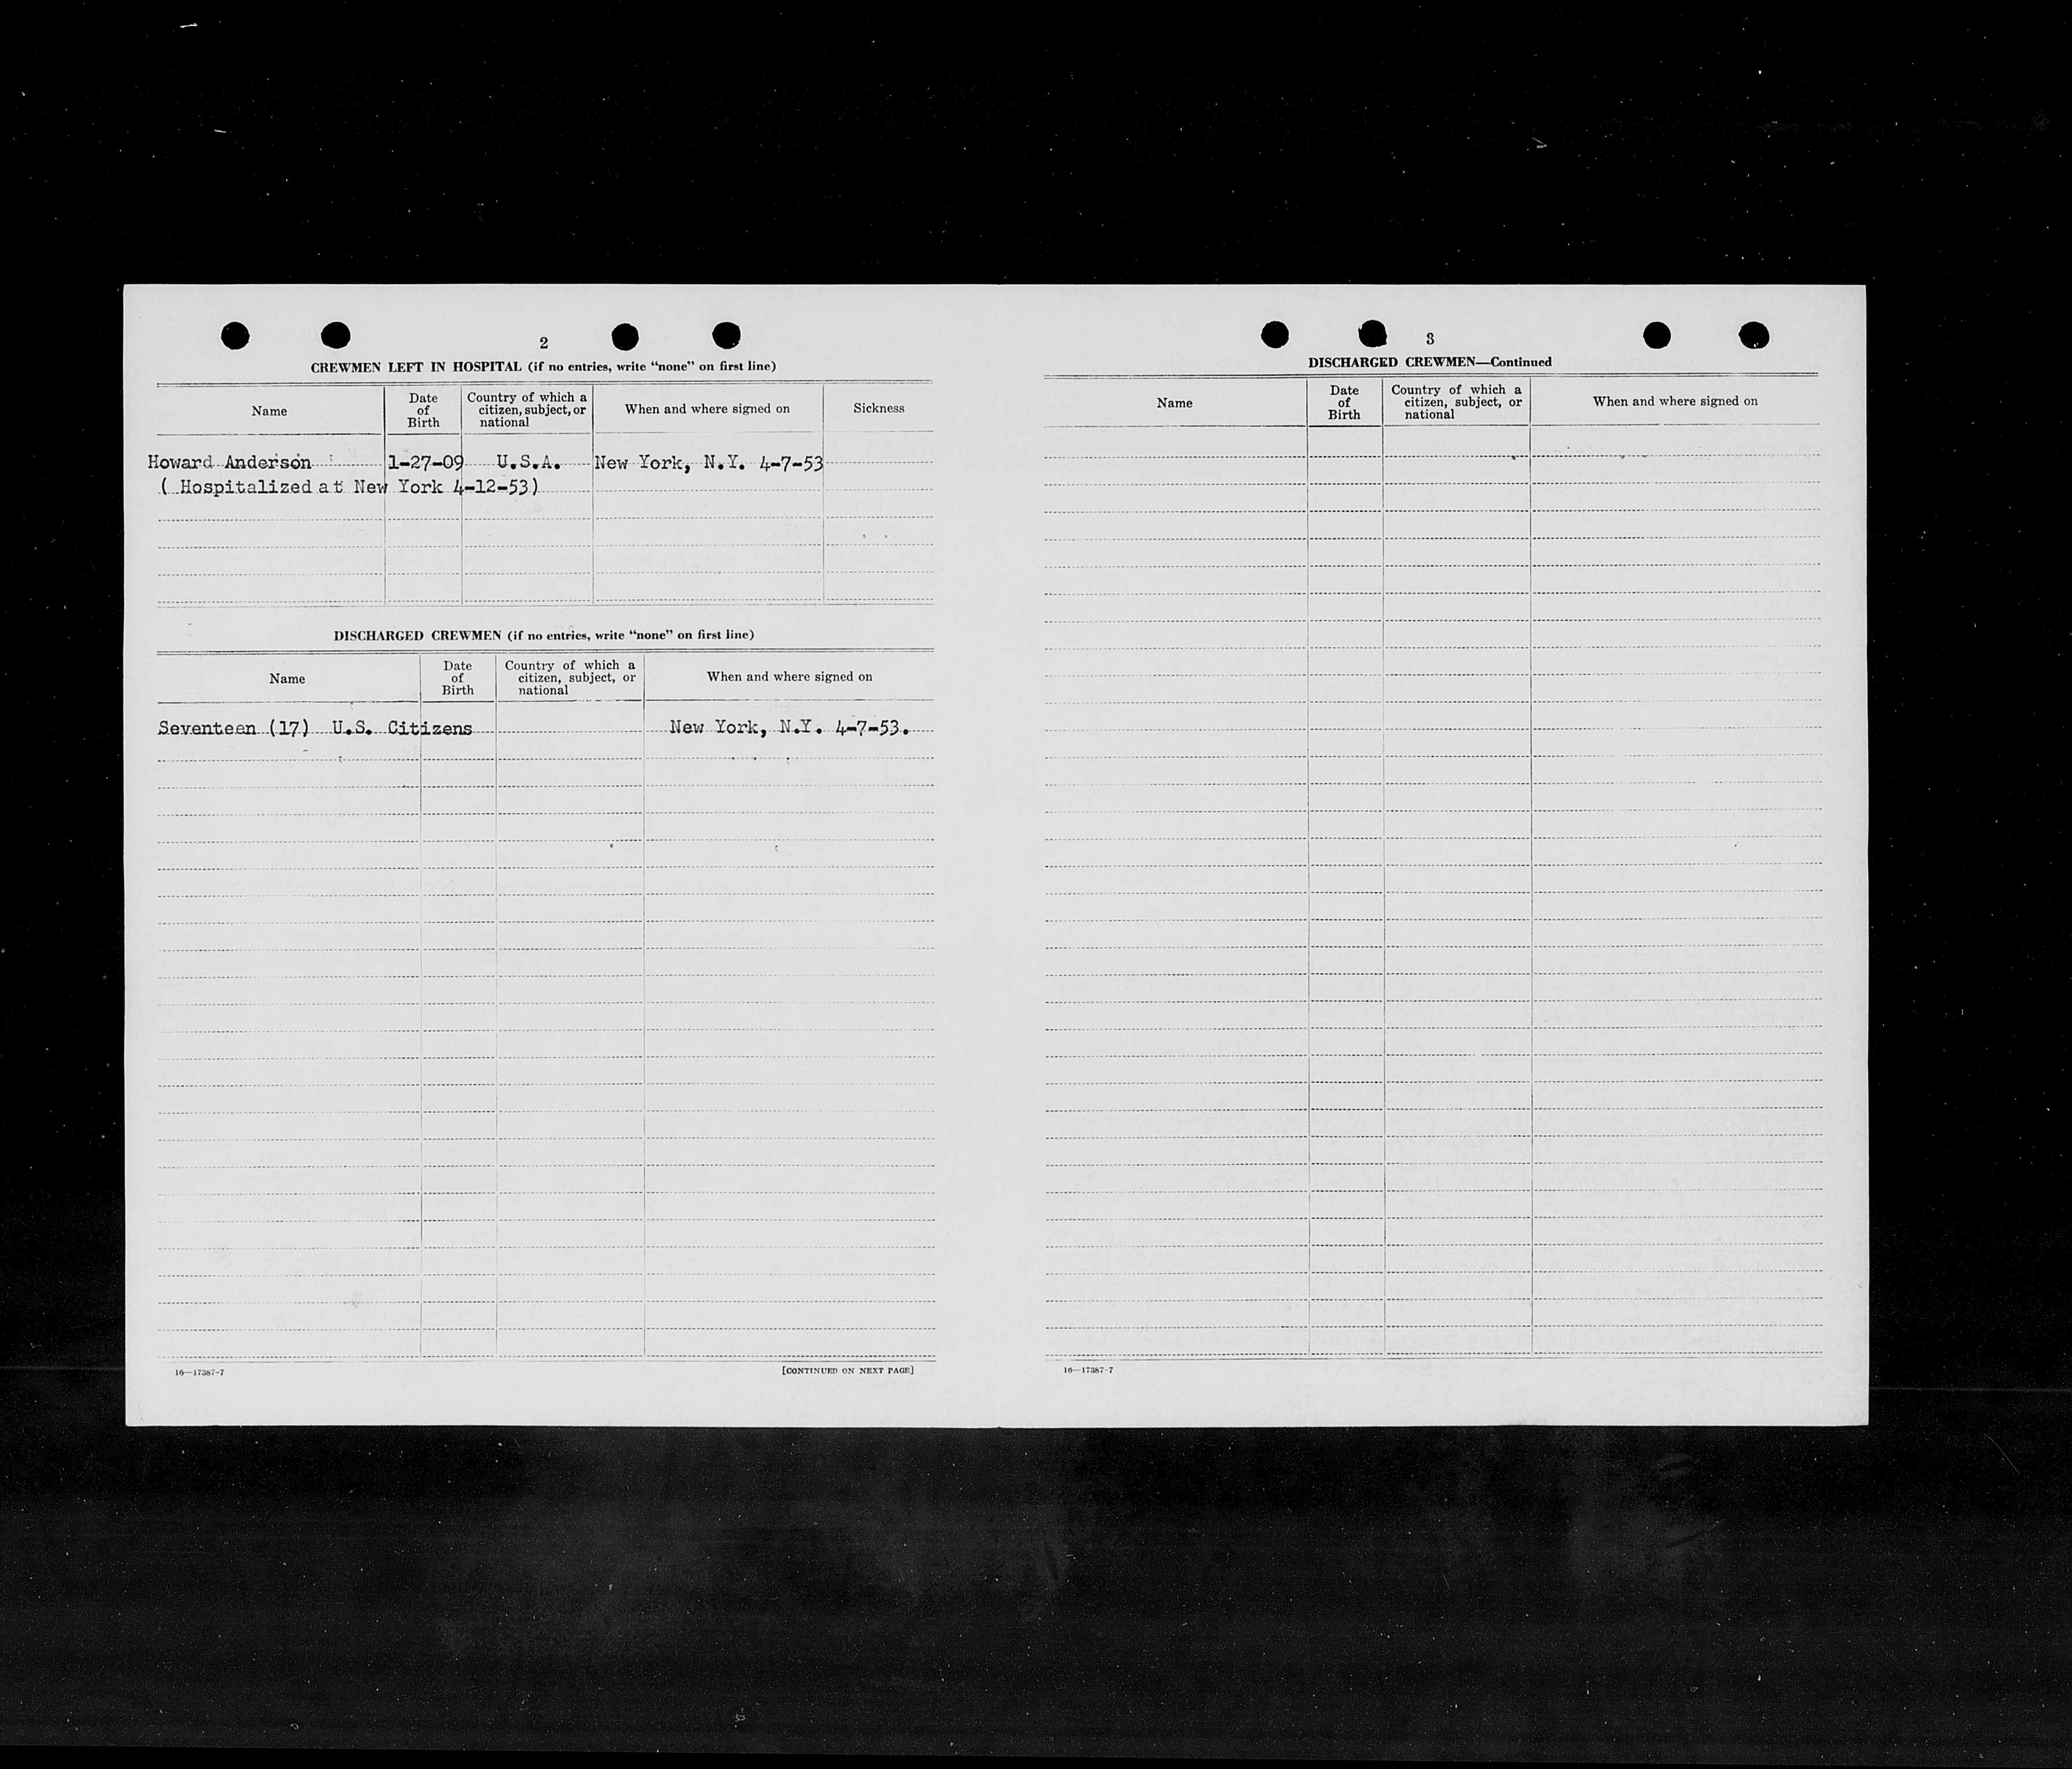 2
CREWMEN LEFT IN HOSPITAL (if no entries, write “none” on first line)
Name
Date of Birth
Country of which a citizen, subject, or national
When and where signed on
Sickness
Howard Anderson 1-27-09 U.S.A. New York, N.Y. 4-7-53
( Hospitalized at New York 4-12-53)
DISCHARGED CREWMEN (if no entries, write “none” on first line)
Name
Date of Birth
Country of which a citizen, subject, or national
When and where signed on
Seventeen (17) U.S. Citizens New York, N.Y. 4-7-53.
16—17387-7 [CONTINUED ON NEXT PAGE]
3
DISCHARGED CREWMEN—Continued
Name
Date of Birth
Country of which a citizen, subject, or national
When and where signed on
16—17387-7